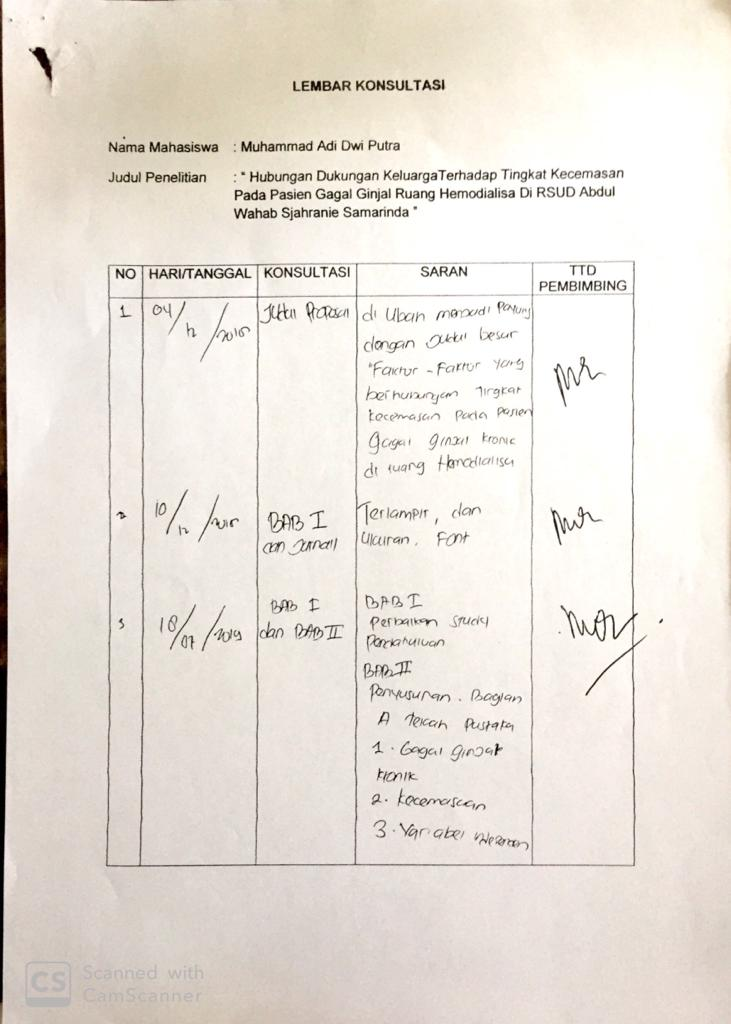 LEMBAR KONSULTASI
Nama Mahasiswa : Muhammad Adi Dwi Putra
Judul Penelitian : " Hubungan Dukungan KeluargaTerhadap Tingkat Kecemasan
Pada Pasien Gagal Ginjal Ruang Hemodialisa Di RSUD Abdul
Wahab Sjahranie Samarinda "
NO HARI/TANGGAL KONSULTASI SARAN TTD PEMBIMBING
1 04/12/2018 Judul Proposal
di Ubah menjadi Payung
dengan Judul besar
"Faktor - Faktor yang
berhubungan Tingkat
kecemasan pada pasien
Gagal ginjal kronic
di ruang Hemodialisa
2 10/12/2018 BAB I
dan Jurnal
Terlampir, dan
Ukuran. Font
3 18/07/2019 BAB I
dan BAB II
BAB I
Perbaikan Study
Pendahuluan
BAB II
Penyusunan. Bagian
A Telaah Pustaka
1. Gagal ginjal
kronik
2. kecemasan
3. Variabel
CS Scanned with
CamScanner